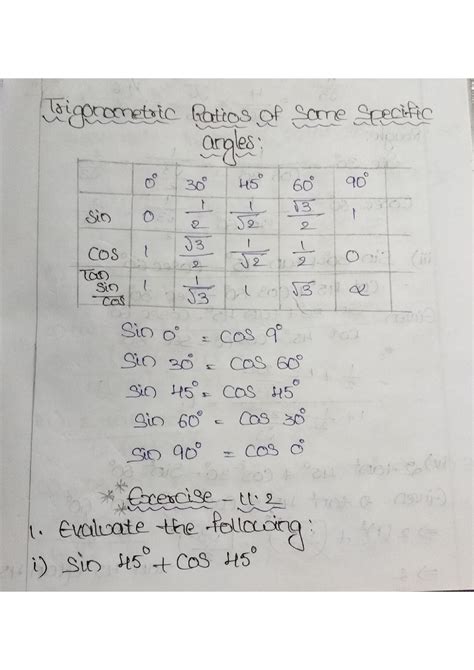 Trigonometric Ratios of Some Specific
angles:
0° 30° 45° 60° 90°
Sin 0 1/2 1/√2 √3/2 1
Cos 1 √3/2 1/√2 1/2 0
Tan Sin/Cos 1 1/√3 1 √3 α
Sin 0° = Cos 9°
Sin 30° = Cos 60°
Sin 45° = Cos 45°
Sin 60° = Cos 30°
Sin 90° = Cos 0°
Exercise - 11.2
1. Evaluate the following:
i) Sin 45° + Cos 45°